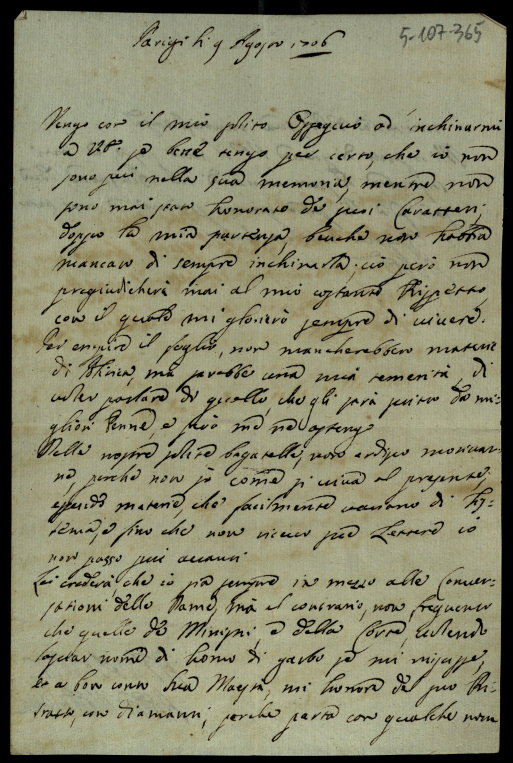 Parigi li 9 Agosto 1706
5-107-365
Vengo con il mio solito ossequio ad inchinarmi
a VS. se bene tengo per certo, che io non
sono più nella sua memoria, mentre non
sono mai stato honorato de suoi Caratteri,
doppo la mia partenza, benche non habbia
mancato di sempre inchinarla; ciò però non
pregiudicherà mai al mio costante Rispetto,
con il quale mi glorierò sempre di vivere.
Per empire il foglio, non mancherebbero materie
di Politica, ma sarebbe una mia temerità di
voler parlare di quello, che gli sarà scritto da mi-
gliori Penne, e però me ne astengo
Delle nostre solite bagatelle, non ardisco motivar-
ne, perche non so come si viva al presente,
essendo materie che facilmente variano di Sy-
stema, e sino che non ricevo sue Lettere io
non posso più avanti
Lei crederà, che io sia sempre in mezzo alle Conver-
sationi delle Dame, ma al contrario, non frequento
che quelle de Ministri, e della Corte, volendo
lasciar nome di homo di garbo se mi riesce,
et a bon conto Sua Maestà, mi honora de suo Ri-
tratto, con diamanti, perche parta con qualche nom